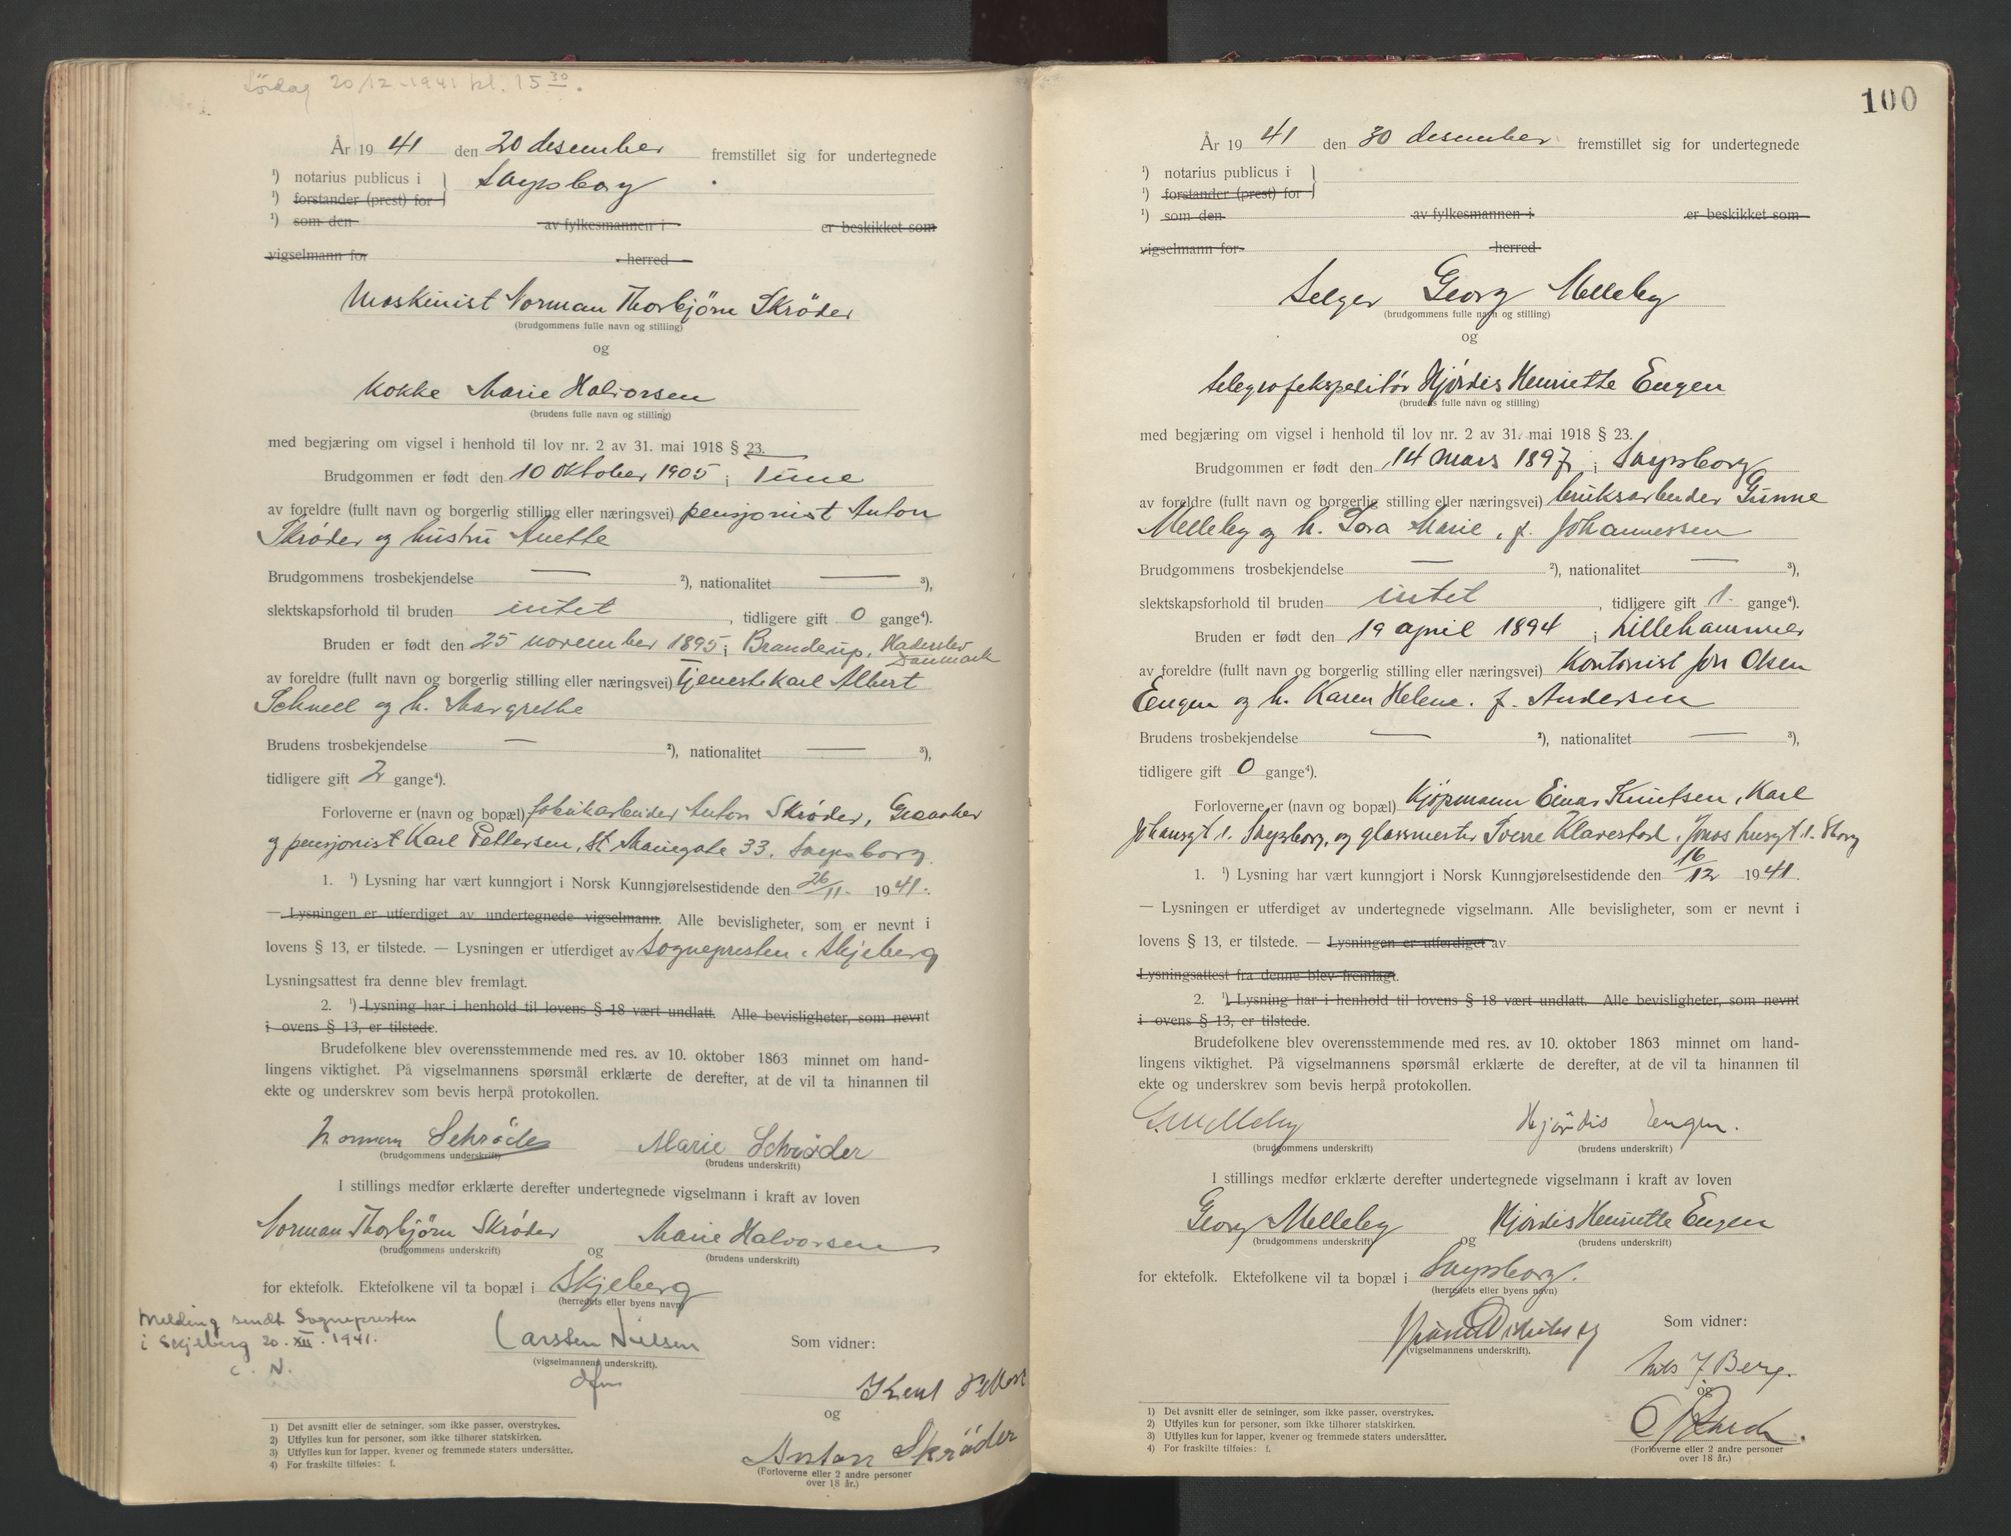 Lördag 20/12-1941 kl. 15 30.
År 1941 den 20 desember fremstillet sig for undertegnede
¹) notarius publicus i } Sarpsborg
¹) forstander (prest) for
¹) som den av fylkesmannen i er beskikket som
vigselmann for herred
Maskinist Norman Thorbjörn Skrøder
(brudgommens fulle navn og stilling)
og
Kokke Marie Halvorsen
(brudens fulle navn og stilling)
med begjæring om vigsel i henhold til lov nr. 2 av 31. mai 1918 § 23.
Brudgommen er født den 10 oktober 1905 i Tune
av foreldre (fullt navn og borgerlig stilling eller næringsvei) pensjonist Anton
Skrøder og hustru Anette
Brudgommens trosbekjendelse — ²), nationalitet — ³),
slektskapsforhold til bruden intet, tidligere gift 0 gange⁴).
Bruden er født den 25 november 1895 i Branderup, Haderslev
Danmark
av foreldre (fullt navn og borgerlig stilling eller næringsvei) Tjenestekarl Albert
Schnell og h. Margrethe
Brudens trosbekjendelse — ²), nationalitet — ³),
tidligere gift 2 gange⁴).
Forloverne er (navn og bopæl) fabrikarbeider Anton Skrøder, Graaaker
og pensjonist Karl Pettersen, St. Mariegate 33, Sarpsborg
1. ¹) Lysning har vært kunngjort i Norsk Kunngjørelsestidende den 26/11. 1941.
— Lysningen er utferdiget av undertegnede vigselmann. Alle bevisligheter, som er nevnt i
lovens § 13, er tilstede. — Lysningen er utferdiget av Sognepresten i Skjeberg
Lysningsattest fra denne blev fremlagt.
2. ¹) Lysning har i henhold til lovens § 18 vært undlatt. Alle bevisligheter, som nevnt
i ovens § 13, er tilstede.
Brudefolkene blev overensstemmende med res. av 10. oktober 1863 minnet om hand-
lingens viktighet. På vigselmannens spørsmål erklærte de derefter, at de vil ta hinannen til
ekte og underskrev som bevis herpå protokollen.
Norman Schrøder Marie Schrøder
(brudgommens underskrift) (brudens underskrift)
I stillings medfør erklærte derefter undertegnede vigselmann i kraft av loven
Norman Thorbjörn Skrøder og Marie Halvorsen
(brudgommens underskrift) (brudens underskrift)
for ektefolk. Ektefolkene vil ta bopæl i Skjeberg
(herredets eller byens navn)
Melding sendt Sognepresten
i Skjeberg 20. XII. 1941.
C. N.
Carsten Nielsen
(vigselmannens underskrift).
dfm
Som vidner:
og
Anton Skrøder
(Forloverne eller 2 andre personer
over 18 år.)
1) Det avsnitt eller de setninger, som ikke passer, overstrykes.
2) Utfylles kun for personer, som ikke tilhører statskirken.
3) Utfylles kun for lapper, kvener og fremmede staters undersåtter.
4) For fraskilte tilføies: f.
100
År 1941 den 30 desember fremstillet sig for undertegnede
¹) notarius publicus i }
¹) forstander (prest) for
¹) som den av fylkesmannen i er beskikket som
vigselmann for herred
Selger Georg Melleby
(brudgommens fulle navn og stilling)
og
telegrafekspeditør Hjördis Henriette Engen
(brudens fulle navn og stilling)
med begjæring om vigsel i henhold til lov nr. 2 av 31. mai 1918 § 23.
Brudgommen er født den 14 mars 1897 i Sarpsborg
av foreldre (fullt navn og borgerlig stilling eller næringsvei) bruksarbeider Gunne
Melleby og h. Lora Marie, f. Johannessen
Brudgommens trosbekjendelse — ²), nationalitet — ³),
slektskapsforhold til bruden intet, tidligere gift 1. gange⁴).
Bruden er født den 19 april 1894 i Lillehammer
av foreldre (fullt navn og borgerlig stilling eller næringsvei) Kontorist Jon Olsen
Engen og h. Karen Helene. f. Andersen
Brudens trosbekjendelse — ²), nationalitet — ³),
tidligere gift 0 gange⁴).
Forloverne er (navn og bopæl) Kjøpmann Einar Knutsen, Karl
Johansgt 1. Sarpsborg, og glassmester Sverre Klavestad, Jonas husgt 1. Sborg
1. ¹) Lysning har vært kunngjort i Norsk Kunngjørelsestidende den 16/12 1941.
— Lysningen er utferdiget av undertegnede vigselmann. Alle bevisligheter, som er nevnt i
lovens § 13, er tilstede. — Lysningen er utferdiget av
Lysningsattest fra denne blev fremlagt.
2. ¹) Lysning har i henhold til lovens § 18 vært undlatt. Alle bevisligheter, som nevnt
i ovens § 13, er tilstede.
Brudefolkene blev overensstemmende med res. av 10. oktober 1863 minnet om hand-
lingens viktighet. På vigselmannens spørsmål erklærte de derefter, at de vil ta hinannen til
ekte og underskrev som bevis herpå protokollen.
G. Melleby Hjördis Engen.
(brudgommens underskrift) (brudens underskrift)
I stillings medfør erklærte derefter undertegnede vigselmann i kraft av loven
Georg Melleby og Hjördis Henriette Engen
(brudgommens underskrift) (brudens underskrift)
for ektefolk. Ektefolkene vil ta bopæl i Sarpsborg.
(herredets eller byens navn)
(vigselmannens underskrift).
Som vidner:
Nils J Berg.
og
(Forloverne eller 2 andre personer
over 18 år.)
1) Det avsnitt eller de setninger, som ikke passer, overstrykes.
2) Utfylles kun for personer, som ikke tilhører statskirken.
3) Utfylles kun for lapper, kvener og fremmede staters undersåtter.
4) For fraskilte tilføies: f.